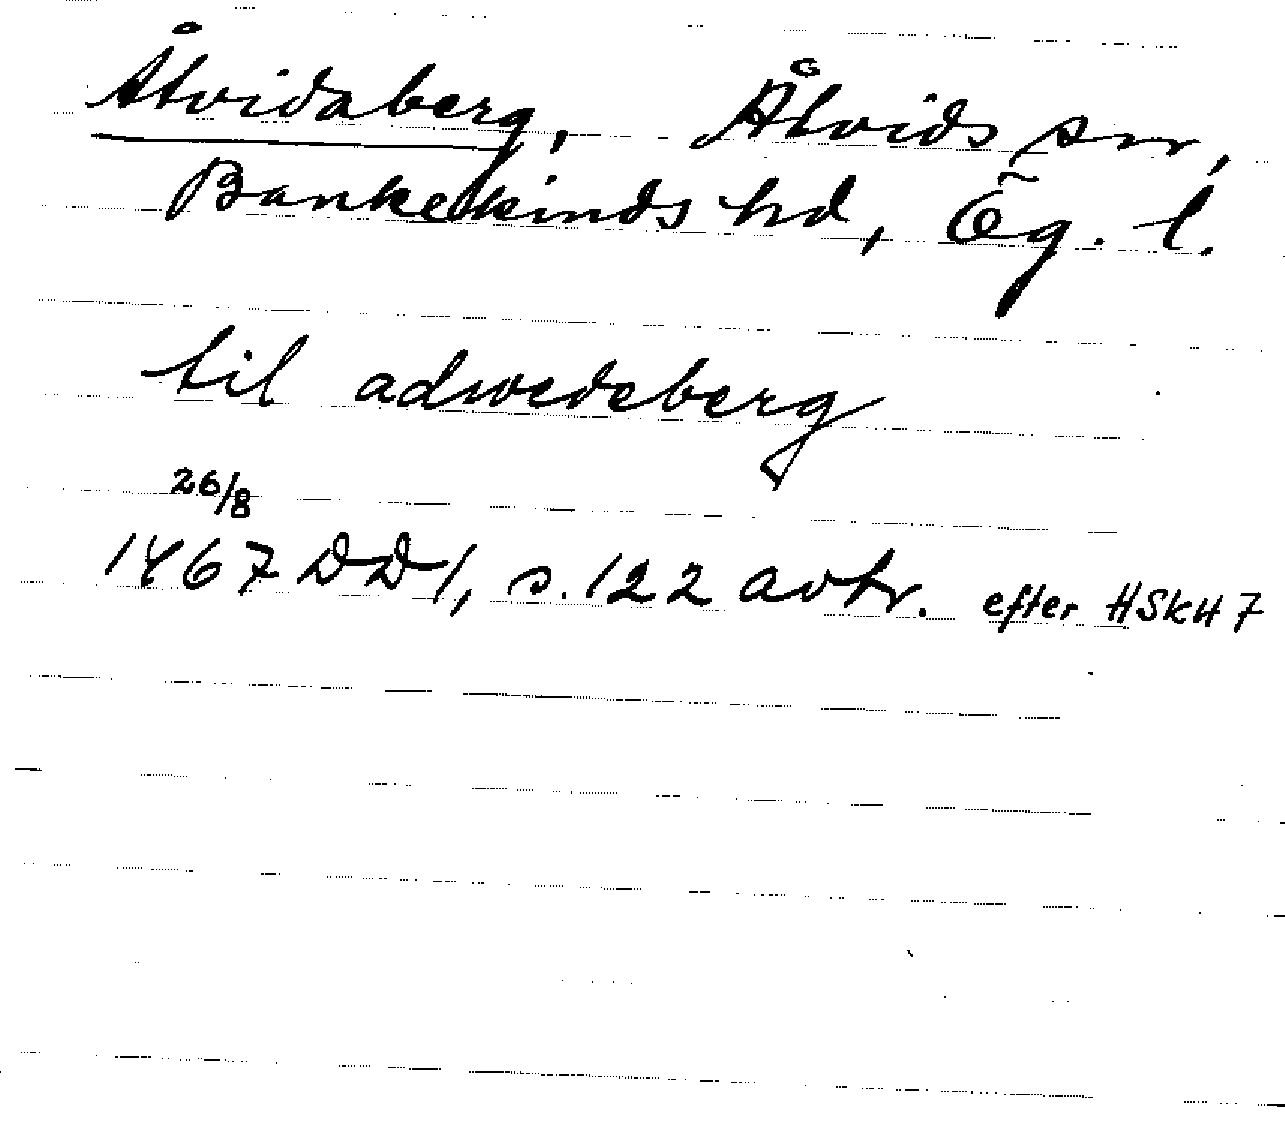 Åtvidaberg, Åtvids sn,
Bankekinds hd, Ög. l.
til adwedeberg
26/8
1467 DD1, s. 122 avtr. efter HSkH 7